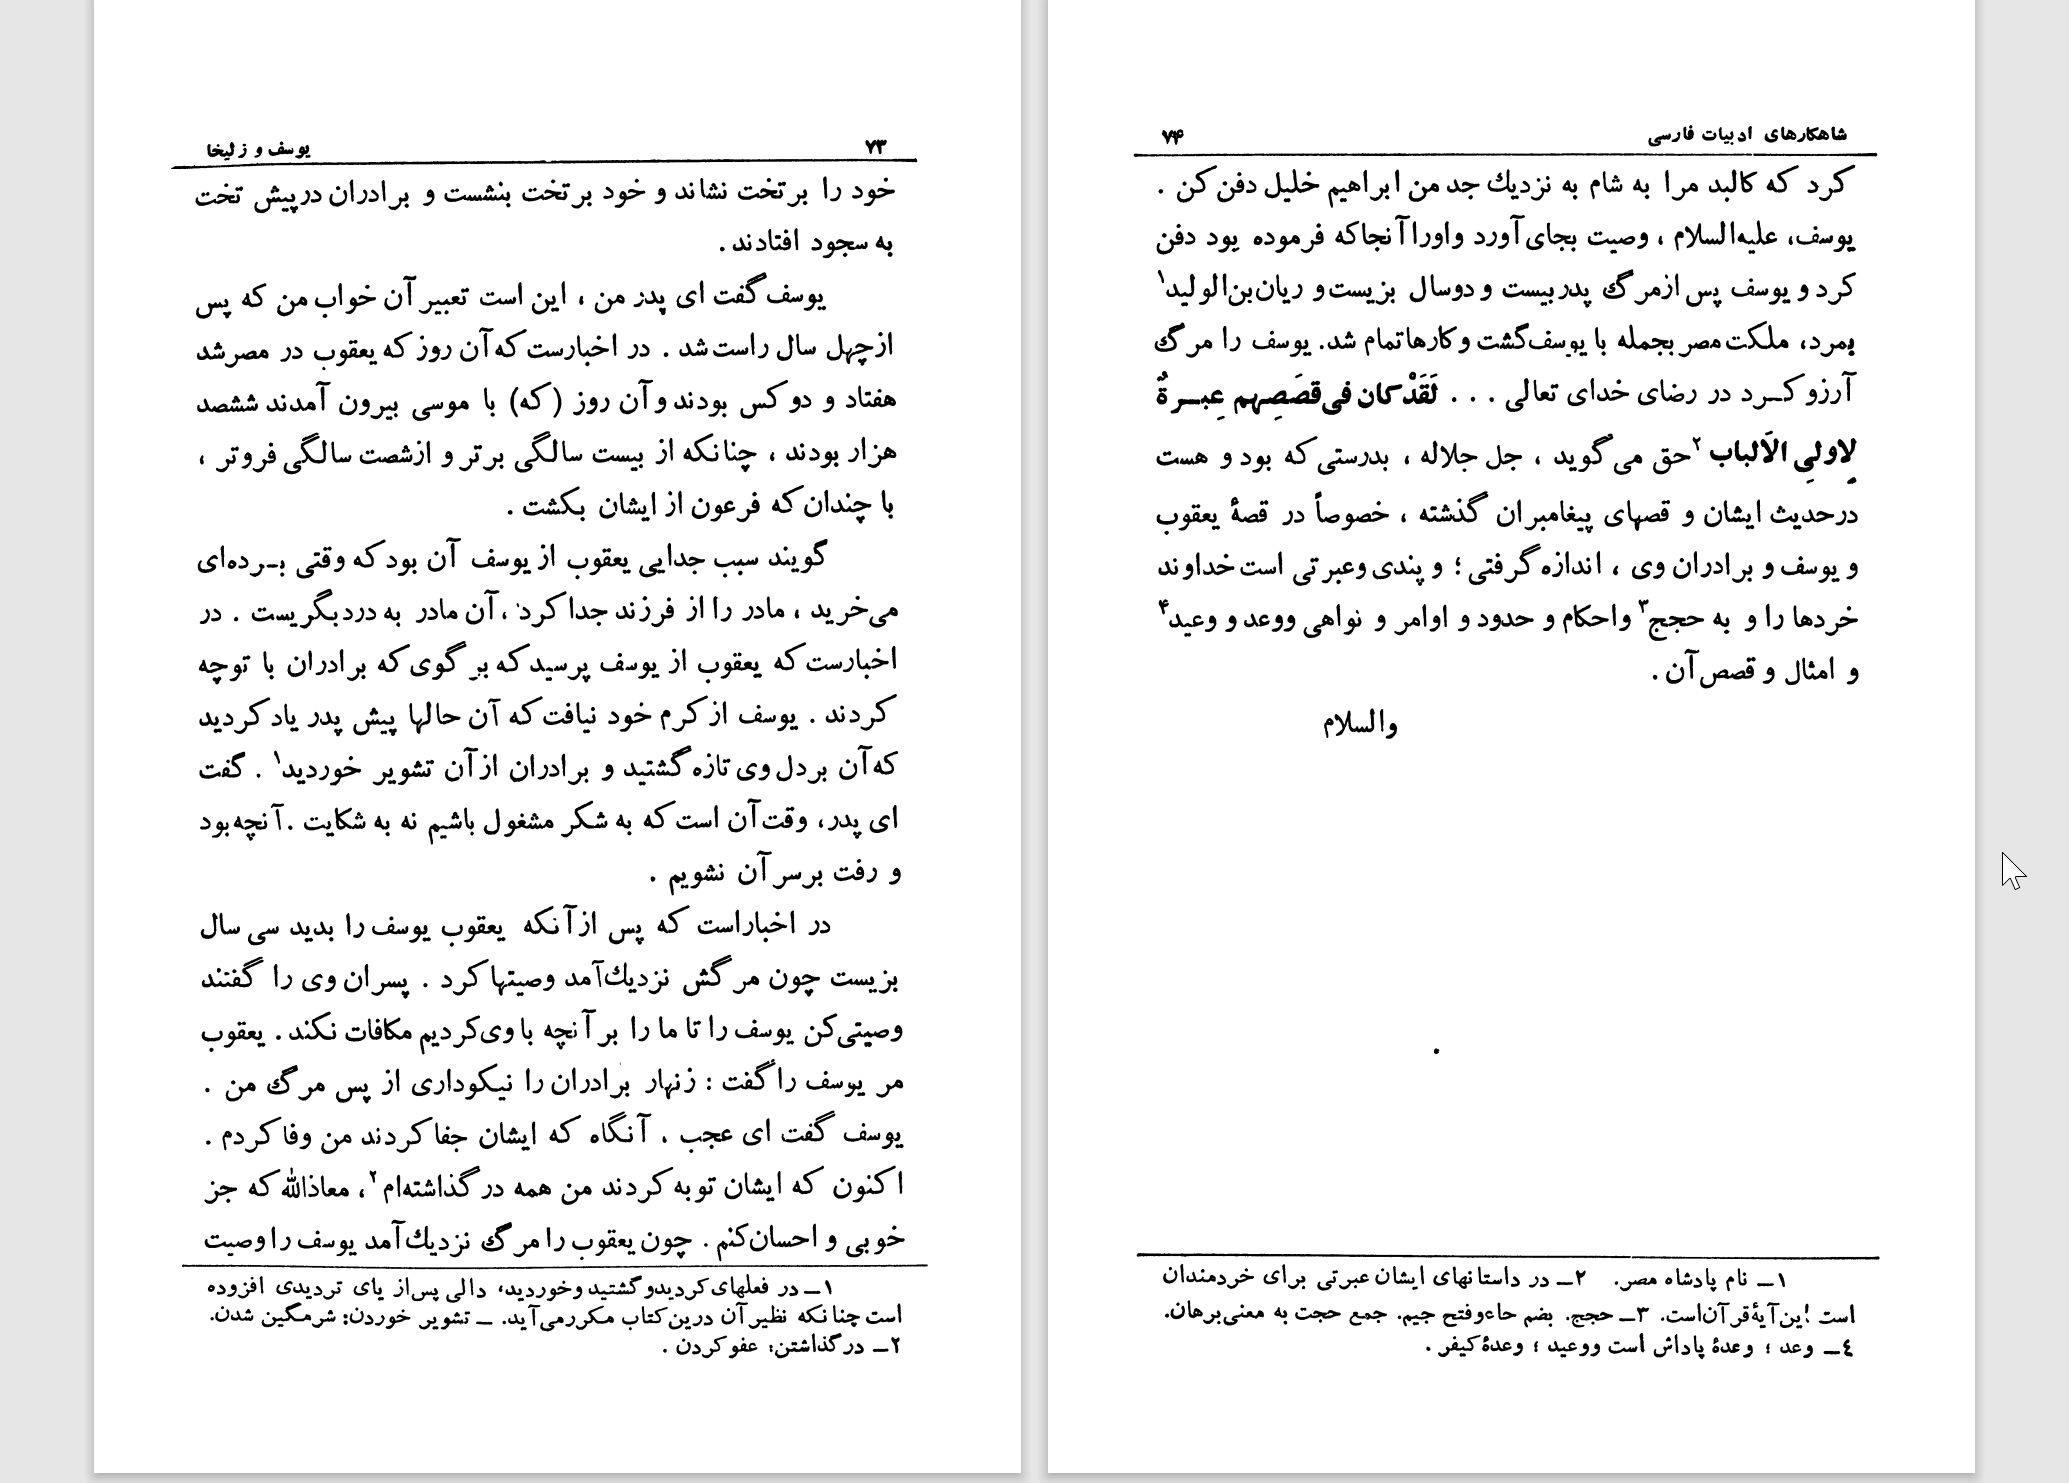 یوسف و زلیخا ۷۳
خود را بر تخت نشاند و خود بر تخت بنشست و برادران در پیش تخت
به سجود افتادند.
یوسف گفت ای پدر من ، این است تعبیر آن خواب من که پس
از چهل سال راست شد . در اخبارست که آن روز که یعقوب در مصر شد
هفتاد و دو کس بودند و آن روز (که) با موسی بیرون آمدند ششصد
هزار بودند ، چنانکه از بیست سالگی برتر و از شصت سالگی فروتر ،
با چندان که فرعون از ایشان بکشت .
گویند سبب جدایی یعقوب از یوسف آن بود که وقتی بـرده‌ای
می‌خرید ، مادر را از فرزند جدا کرد ، آن مادر به درد بگریست . در
اخبارست که یعقوب از یوسف پرسید که بر گوی که برادران با تو چه
کردند . یوسف از کرم خود نیافت که آن حالها پیش پدر یاد کردید
که آن بر دل وی تازه گشتید و برادران از آن تشویر خوردید۱ . گفت
ای پدر، وقت آن است که به شکر مشغول باشیم نه به شکایت . آنچه بود
و رفت بر سر آن نشویم .
در اخبار است که پس از آنکه یعقوب یوسف را بدید سی سال
بزیست چون مرگش نزدیك آمد وصیتها کرد . پسران وی را گفتند
وصیتی کن یوسف را تا ما را بر آنچه با وی کردیم مکافات نکند . یعقوب
مر یوسف را گفت : زنهار برادران را نیکو داری از پس مرگ من .
یوسف گفت ای عجب ، آنگاه که ایشان جفا کردند من وفا کردم .
اکنون که ایشان توبه کردند من همه در گذاشته‌ام۲، معاذالله که جز
خوبی و احسان کنم . چون یعقوب را مرگ نزدیك آمد یوسف را وصیت
۱ـ در فعلهای کردید و گشتید و خوردید، دالی پس از یای تردیدی افزوده
است چنانکه نظیر آن درین کتاب مکرر می‌آید. ـ تشویر خوردن: شرمگین شدن.
۲ـ در گذاشتن: عفو کردن .
شاهکارهای ادبیات فارسی ۷۴
کرد که کالبد مرا به شام به نزدیك جد من ابراهیم خلیل دفن کن .
یوسف، علیه‌السلام ، وصیت بجای آورد و او را آنجا که فرموده بود دفن
کرد و یوسف پس از مرگ پدر بیست و دو سال بزیست و ریان بن الولید۱
بمرد، ملکت مصر بجمله با یوسف گشت و کارها تمام شد. یوسف را مرگ
آرزو کـرد در رضای خدای تعالی . . . لَقَدْ کان فی قصَصِهم عِبـرةٌ
لِاولیِ الَالباب۲ حق می گوید ، جل جلاله ، بدرستی که بود و هست
در حدیث ایشان و قصهای پیغامبران گذشته ، خصوصاً در قصهٔ یعقوب
و یوسف و برادران وی ، اندازه گرفتی ؛ و پندی و عبرتی است خداوند
خردها را و به حجج۳ و احکام و حدود و اوامر و نواهی و وعد و وعید۴
و امثال و قصص آن .
والسلام
۱ـ نام پادشاه مصر. ۲ـ در داستانهای ایشان عبرتی برای خردمندان
است این آیهٔ قرآن است. ۳ـ حجج. بضم حاء و فتح جیم. جمع حجت به معنی برهان.
٤ـ وعد ؛ وعدهٔ پاداش است و وعید ؛ وعدهٔ کیفر .